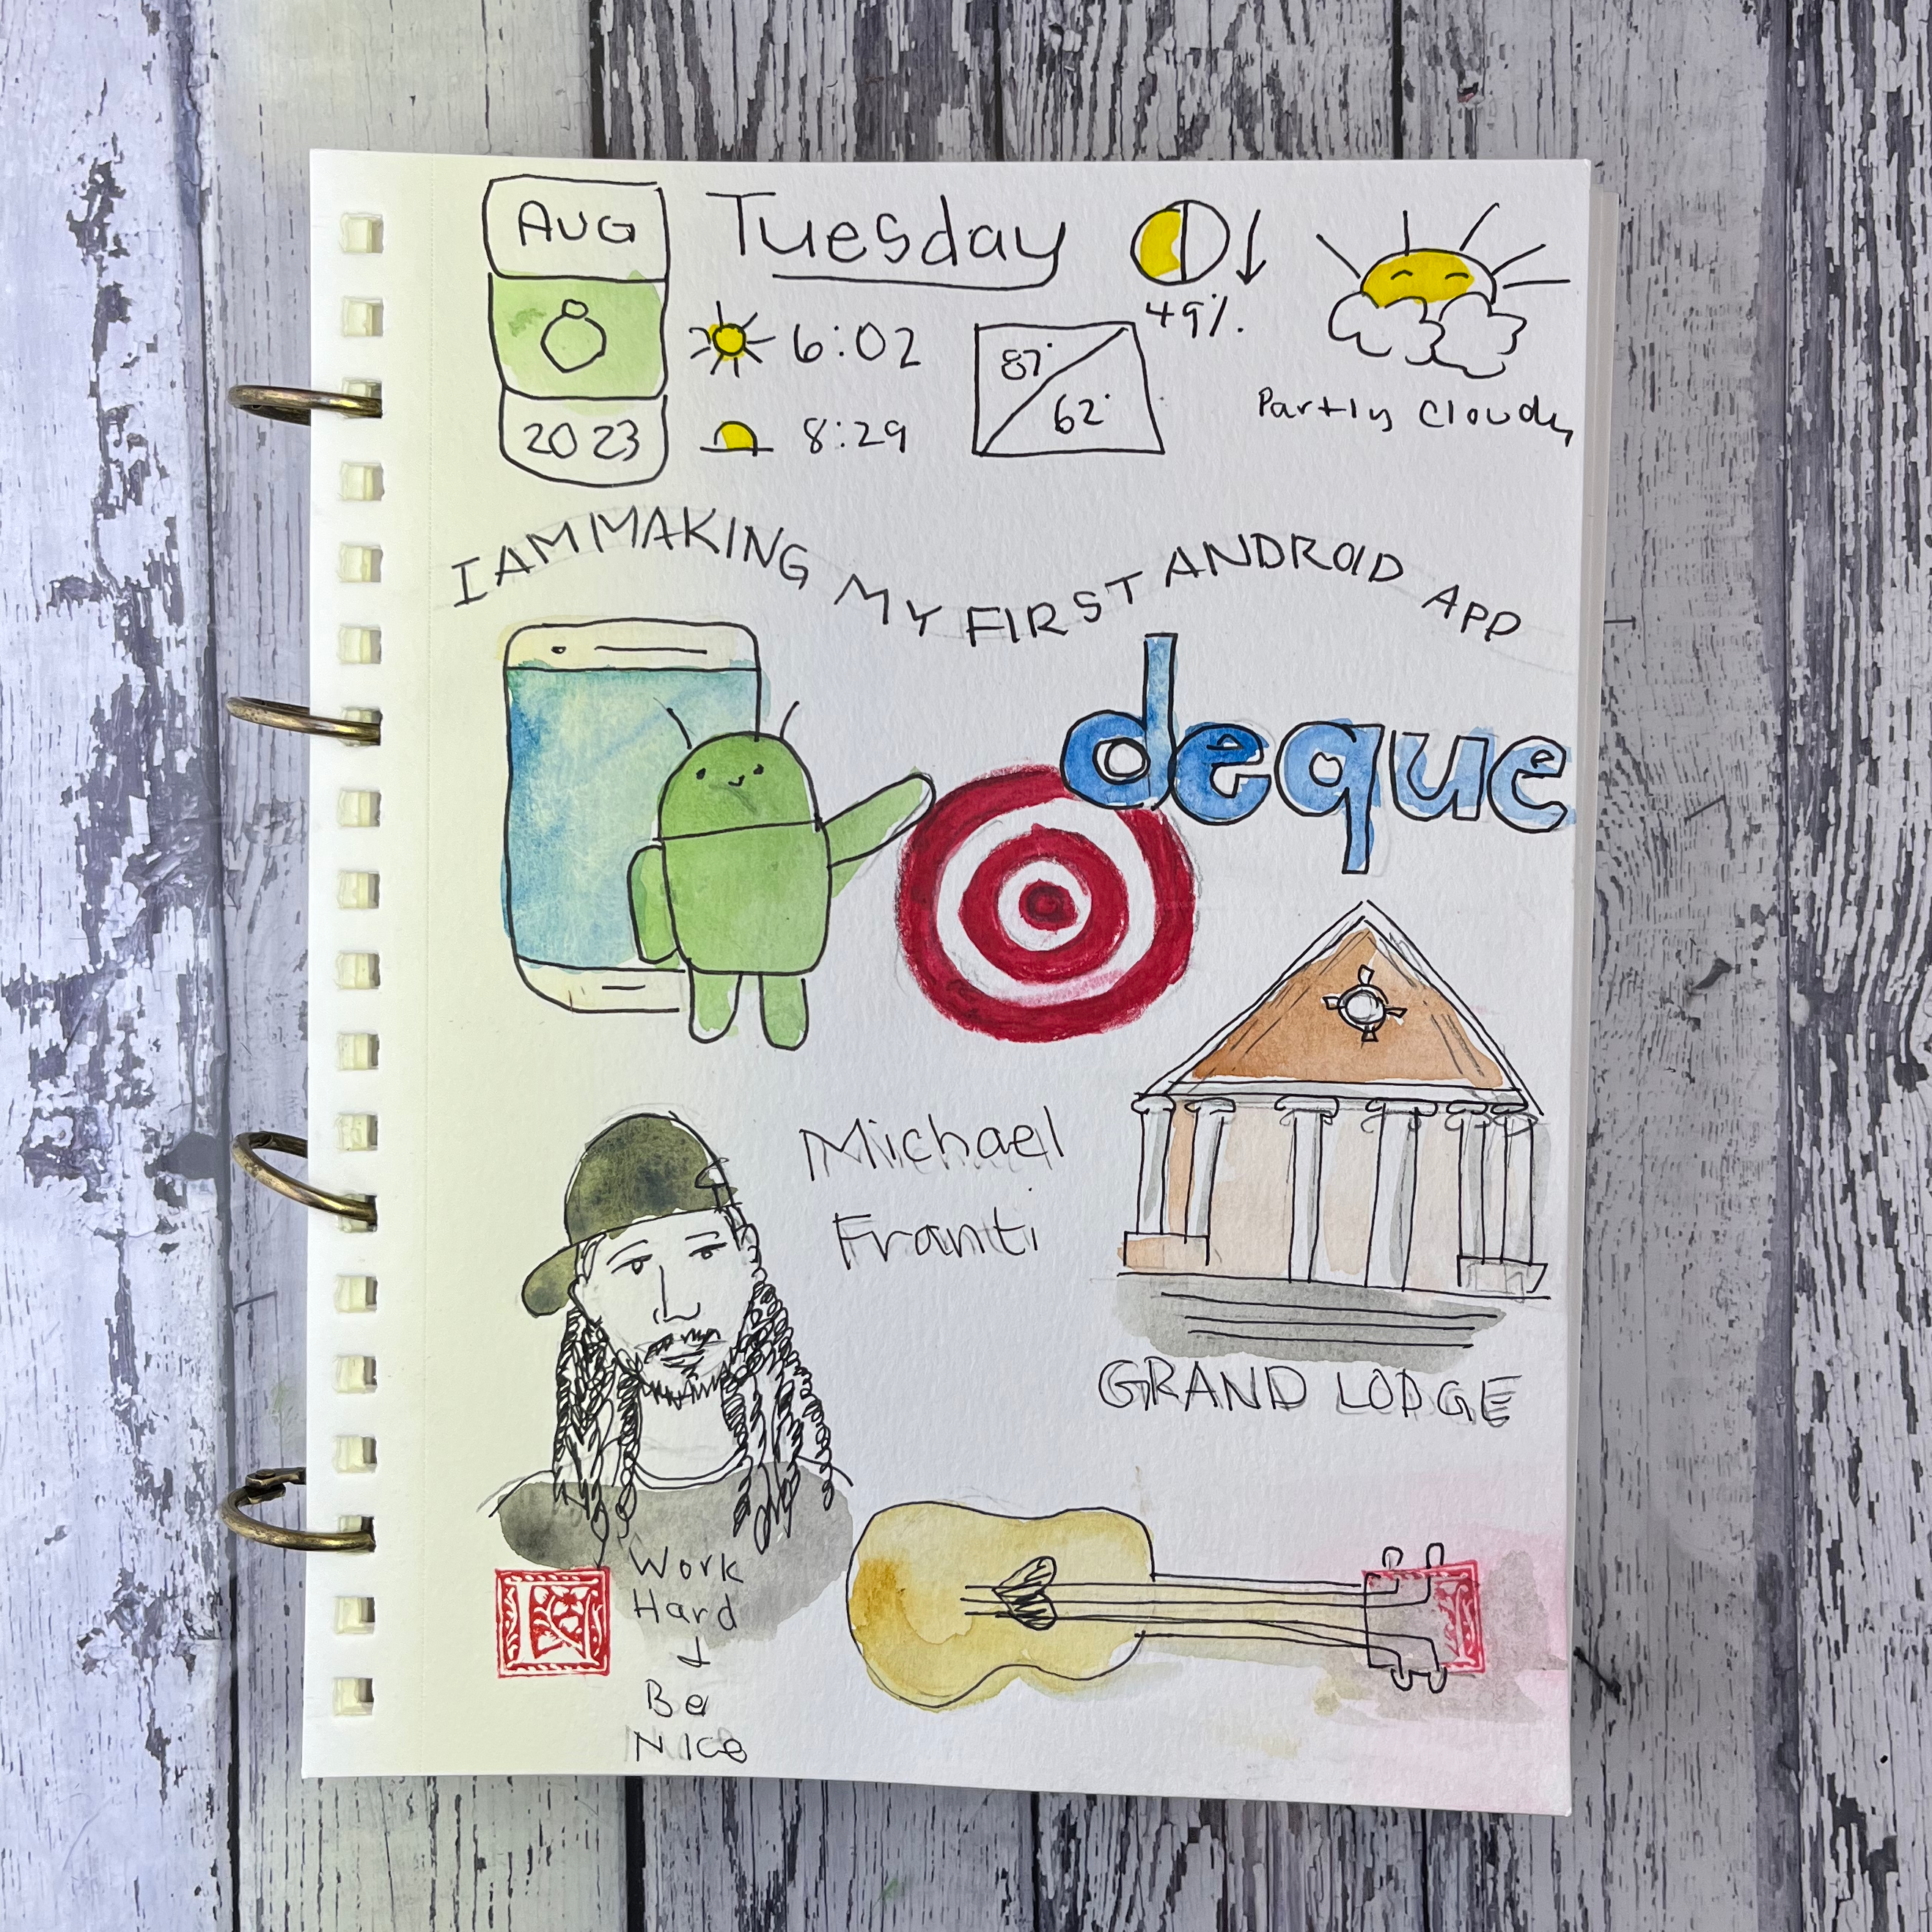 AUG
8
2023
Tuesday
6:02
8:29
87°
62°
49%.
Partly Cloudy
I AM MAKING MY FIRST ANDROID APP
deque
Michael
Franti
GRAND LODGE
Work
Hard
&
Be
Nice
K